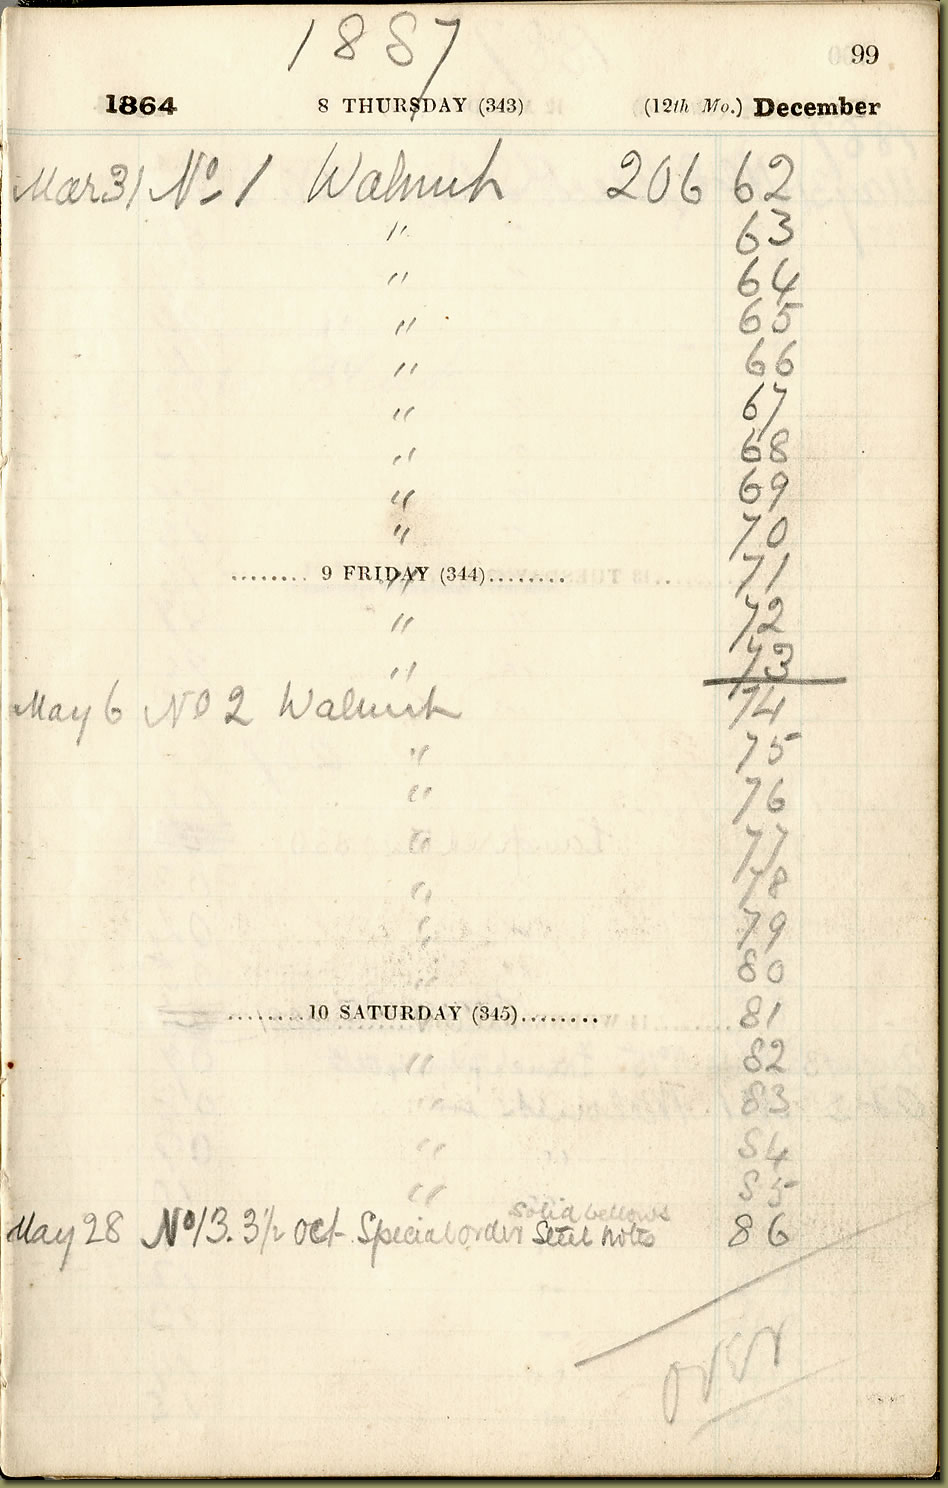 1887
99
1864 8 THURSDAY (343) (12th Mo.) December
Mar 31 No 1 Walnut 206 62
" 63
" 64
" 65
" 66
" 67
" 68
" 69
" 70
........ 9 FRIDAY (344)........ " 71
" 72
" 73
May 6 No 2 Walnut 74
" 75
" 76
" 77
" 78
" 79
" 80
........10 SATURDAY (345)........ 81
" 82
" 83
" 84
" 85
Solid bellows
May 28 No 13. 3½ oct Special order Steel notes 86
over